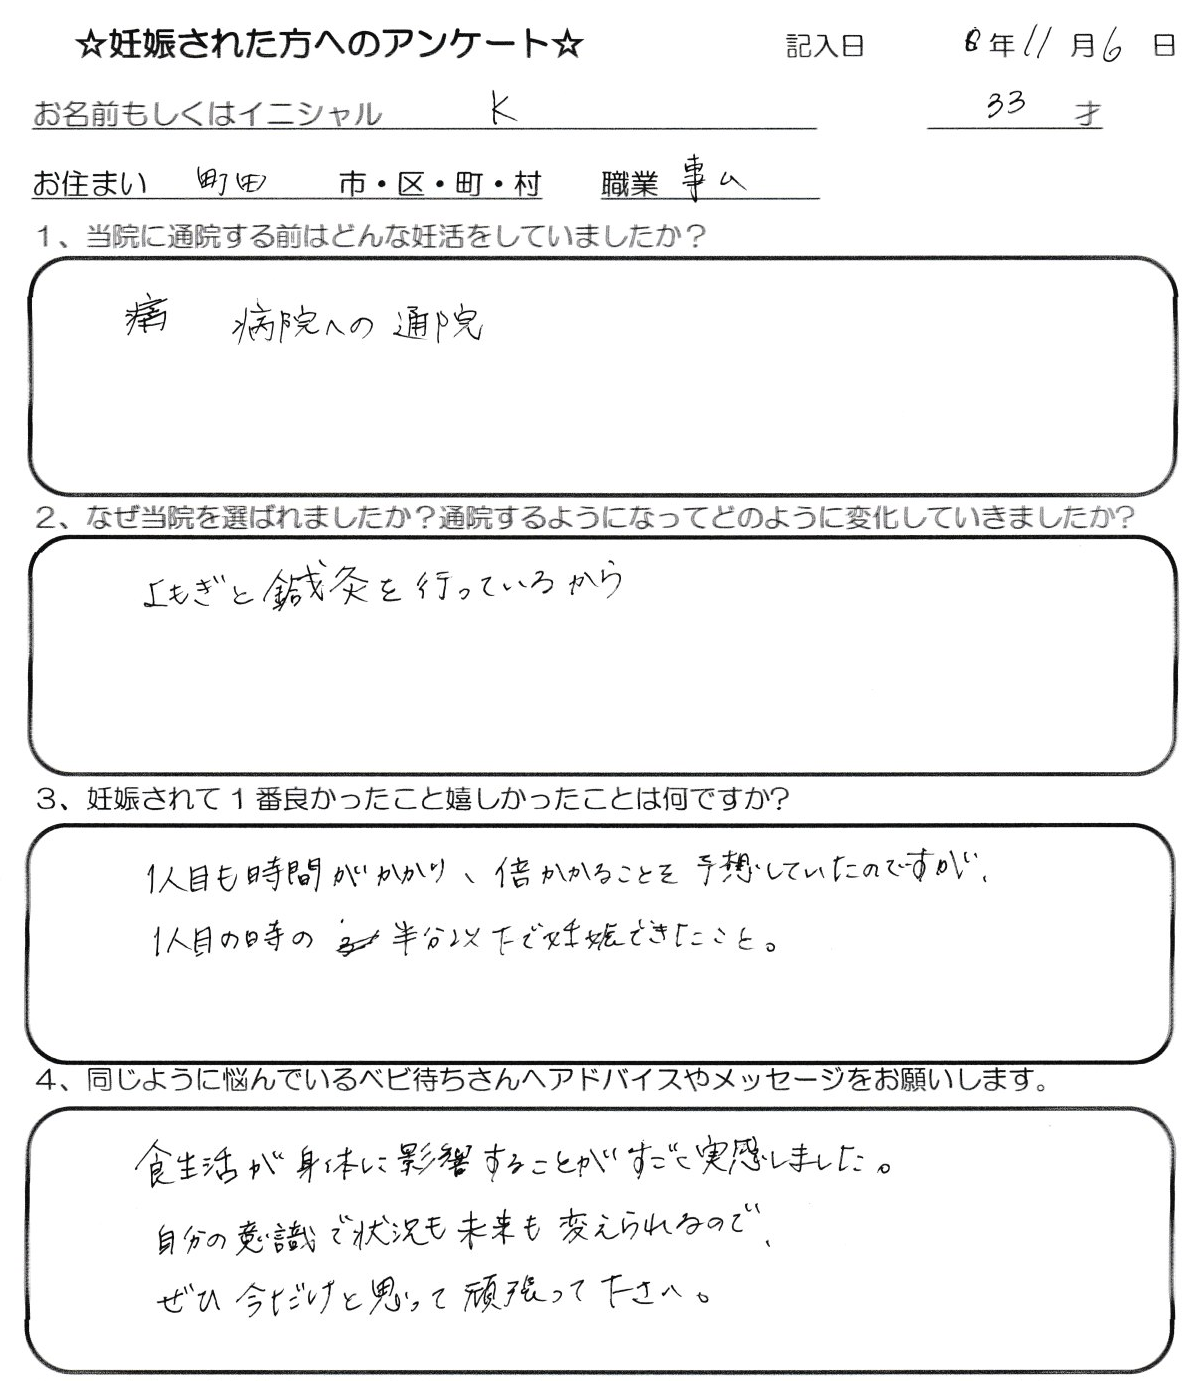 ☆妊娠された方へのアンケート☆ 記入日 6年11月6日
お名前もしくはイニシャル K 33才
お住まい 町田 市・区・町・村 職業 事ム
1、当院に通院する前はどんな妊活をしていましたか？
病院への通院
2、なぜ当院を選ばれましたか？通院するようになってどのように変化していきましたか？
よもぎと鍼灸を行っているから
3、妊娠されて1番良かったこと嬉しかったことは何ですか？
1人目も時間がかかり、倍かかることを予想していたのですが、
1人目の時の半分以下で妊娠できたこと。
4、同じように悩んでいるベビ待ちさんへアドバイスやメッセージをお願いします。
食生活が身体に影響することがすごく実感しました。
自分の意識で状況も未来も変えられるので、
ぜひ今だけと思って頑張って下さい。